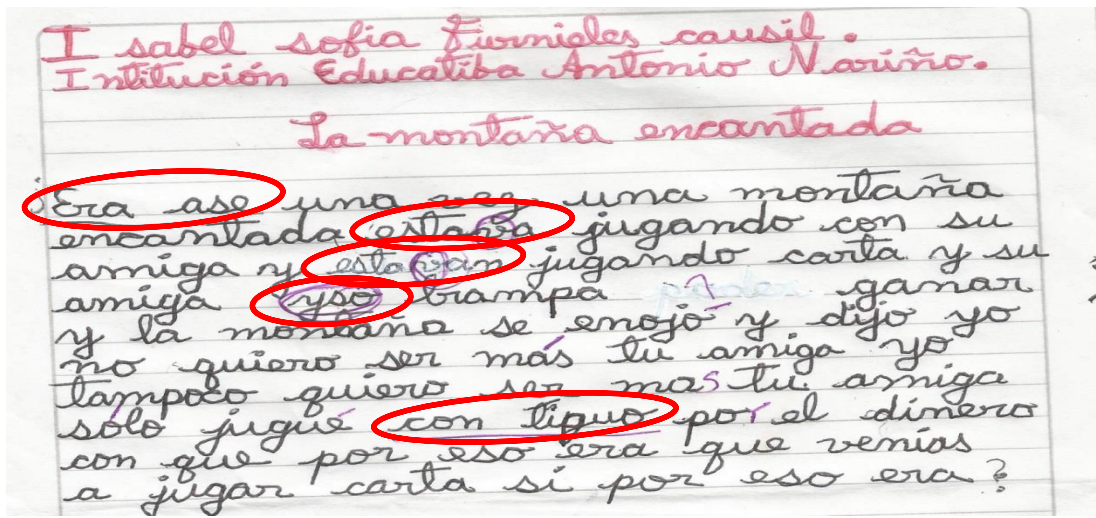 Isabel sofia Furnieles causil.
Intitución Educatiba Antonio Nariño.
La montaña encantada
Era ase una vez una montaña
encantada estava jugando con su
amiga y estavan jugando carta y su
amiga yso trampa ganar
y la montaña se enojó y dijo yo
no quiero ser más tu amiga yo
tampoco quiero ser mas tu amiga
sólo jugué con tiguo por el dinero
con que por eso era que venias
a jugar carta si por eso era?